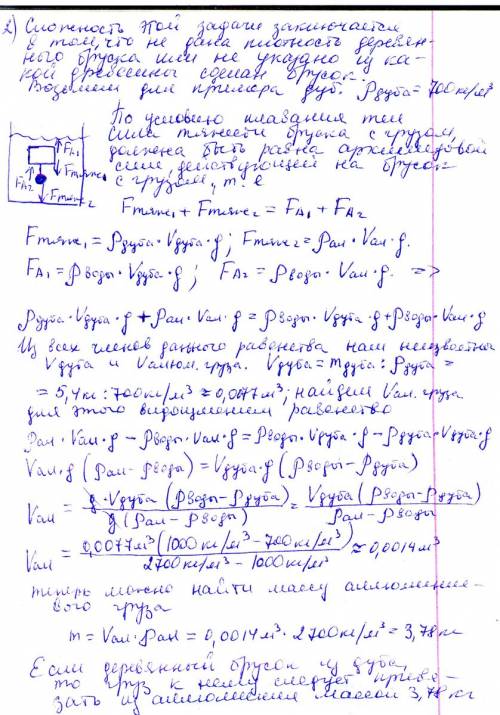 2) Сложность этой задачи заключается
в том, что не дана плотность деревян-
ного бруска или не указано из ка-
кой древесины сделан брусок.
Возьмем для примера дуб. ρдуба = 700 кг/м³
По условию плавания тел
сила тяжести бруска с грузом,
должна быть равна архимедовой
силе, действующей на брусок
с грузом, т. е
FA1
Fтяж1
FA2
Fтяж2
Fтяж1 + Fтяж2 = FA1 + FA2
Fтяж1 = ρдуба · Vдуба · g; Fтяж2 = ρал · Vал · g.
FA1 = ρводы · Vдуба · g; FA2 = ρводы · Vал · g. =>
ρдуба · Vдуба · g + ρал · Vал · g = ρводы · Vдуба · g + ρводы · Vал · g
Из всех членов данного равенства нам неизвестны
Vдуба и Vалюм. груза. Vдуба = mдуба : ρдуба =
= 5,4 кг : 700 кг/м³ ≈ 0,0077 м³; найдем Vал. груза
для этого видоизменяем равенство
ρал · Vал · g − ρводы · Vал · g = ρводы · Vдуба · g − ρдуба · Vдуба · g
Vал · g (ρал − ρводы) = Vдуба · g (ρводы − ρдуба)
Vал = g · Vдуба (ρводы − ρдуба) / g (ρал − ρводы) = Vдуба (ρводы − ρдуба) / ρал − ρводы
Vал = 0,0077 м³ (1000 кг/м³ − 700 кг/м³) / 2700 кг/м³ − 1000 кг/м³ ≈ 0,0014 м³
теперь можно найти массу алюминие-
вого груза
m = Vал · ρал = 0,0014 м³ · 2700 кг/м³ = 3,78 кг
Если деревянный брусок из дуба,
то груз к нему следует привя-
зать из алюминия массой 3,78 кг